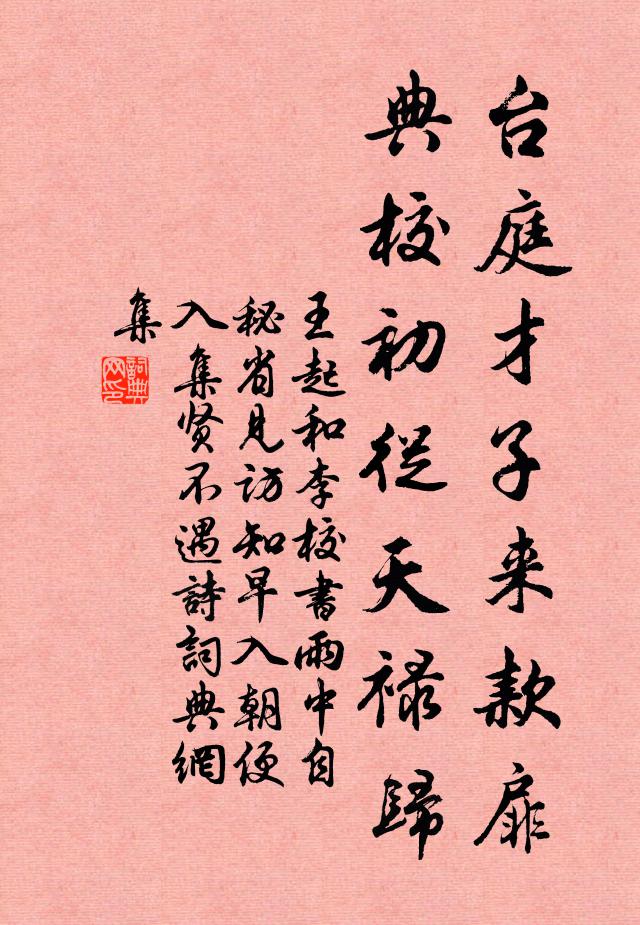 台庭才子来款扉
典校初從天禄歸
王起和李校書雨中自
秘省見訪知早入朝便
入集贤不遇詩詞典網
集
詞典網印